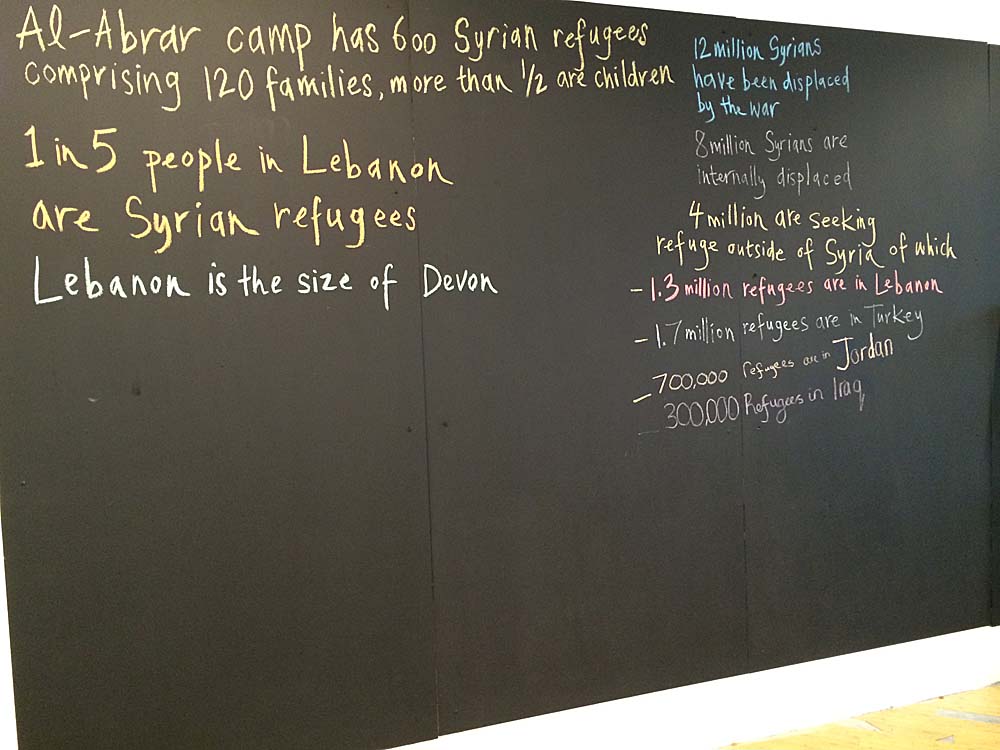 Al-Abrar camp has 600 Syrian refugees
comprising 120 families, more than 1/2 are children
1 in 5 people in Lebanon
are Syrian refugees
Lebanon is the size of Devon
12 million Syrians
have been displaced
by the war
8 million Syrians are
internally displaced
4 million are seeking
refuge outside of Syria of which
- 1.3 million refugees are in Lebanon
- 1.7 million refugees are in Turkey
- 700,000 refugees are in Jordan
- 300,000 Refugees in Iraq